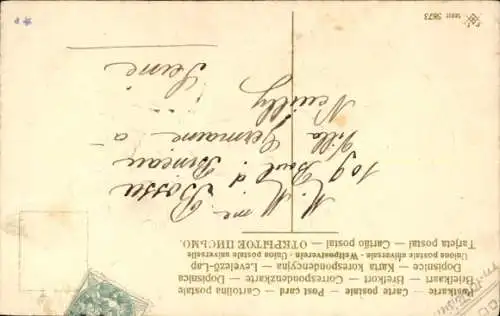 Postkarte — Carte postale — Post card — Cartolina postale
Briefkaart — Brefkort — Correspondenzkarte — Dopisnica
Dopisnice — Karta korespondencyjna — Levelező-Lap
Unione postale universale - Weltpostverein - Union postale universelle
Tarjeta postal — Cartão postal — ОТКРЫТОЕ ПИСЬМО.
M. Mme Bossu
109 Boul. d. Bineau
Villa Germaine a
Neuilly
Seine
SERIE 5873